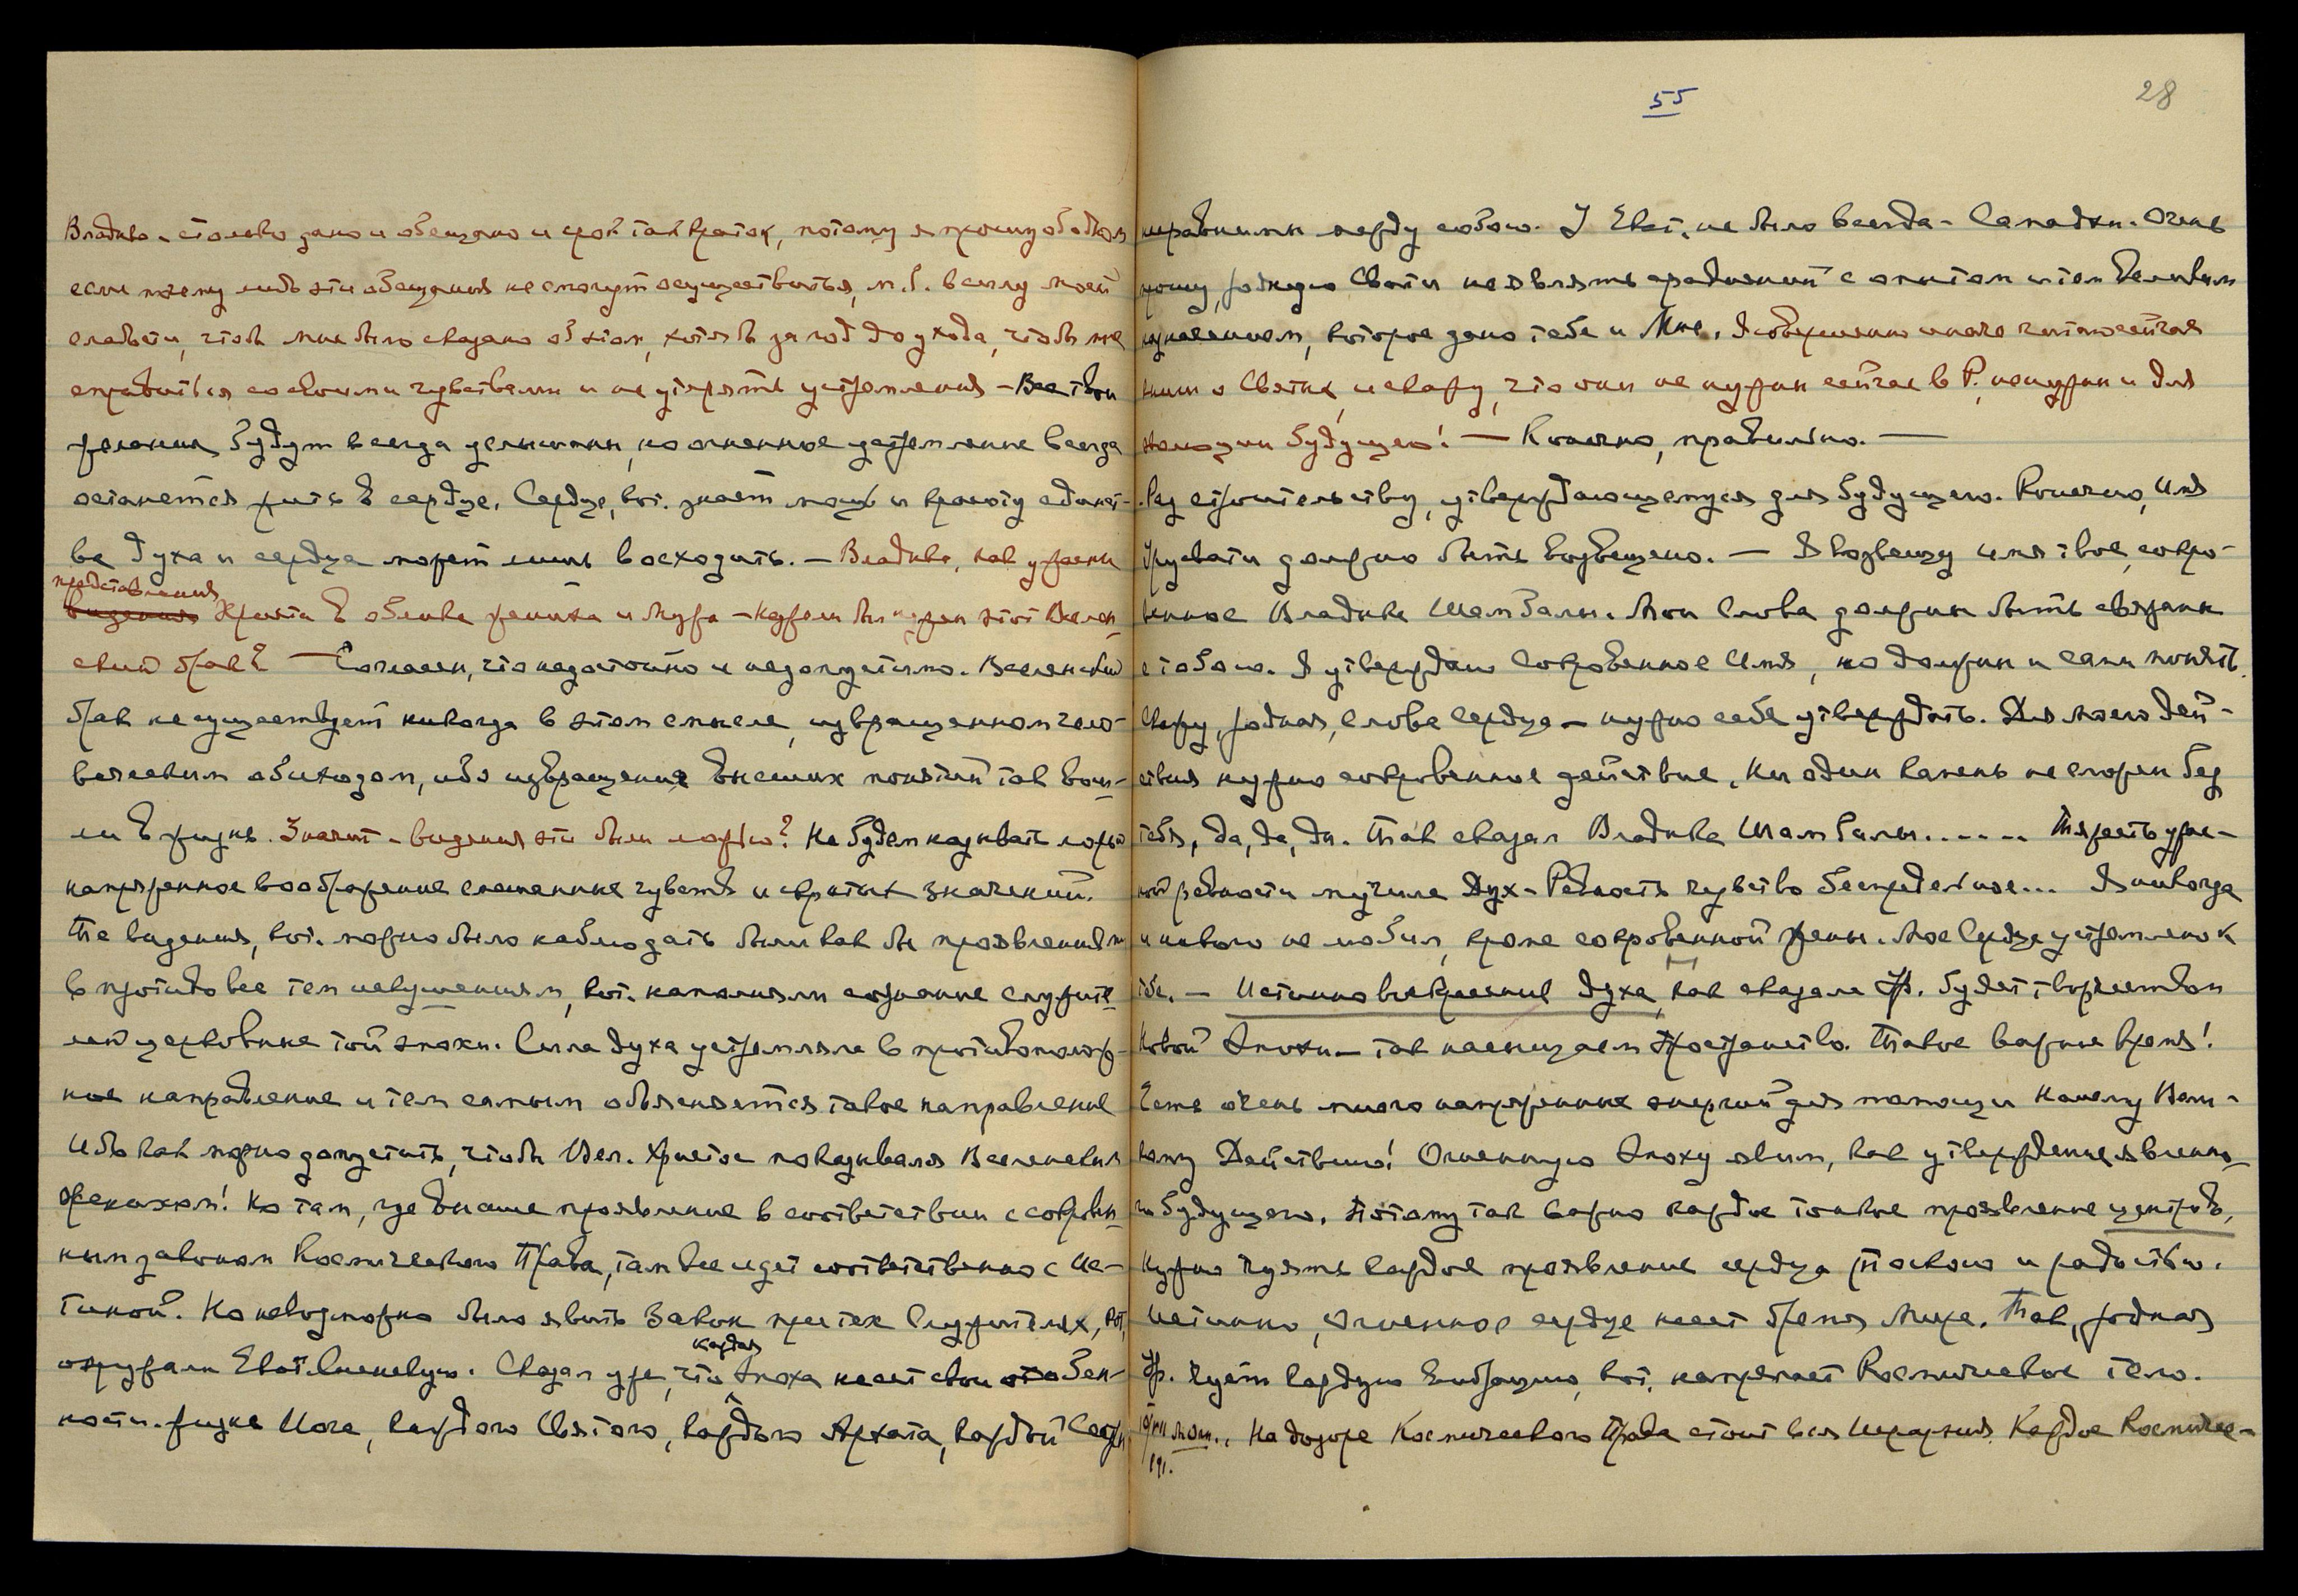 Владыко – столько дано и обещано и срок так краток, потому я прошу об одном
если почему либо эти обещания не смогут осуществиться, м.б. в силу моей
слабости, чтоб мне было сказано об этом, хотя б за год до ухода, чтобы мне
справиться со своими чувствами и не утерять устремления – Все твои
желания будут всегда услышаны, но огненное устремление всегда
останется жить в сердце. Сердце, кот. знает мощь и красоту единст-
ва духа и сердца может лишь восходить. – Владыко, как ужасны
представления
видения Христа в облике жениха и мужа – неужели был нужен этот Вселен-
ский брак? – Согласен, что недостойно и недопустимо. Вселенский
брак не существует никогда в этом смысле, извращенном чело-
веческим обиходом, ибо извращения высших понятий так вош-
ли в жизнь. Значит – видения эти были ложью? Не будем называть ложью
напряженное воображение смешанных чувств и скрытых значений.
Те видения, кот. можно было наблюдать были как бы проявлениям
в противовес тем искушениям, кот. наполняли сознание служите-
лей церковных той эпохи. Сила духа устремляла в противополож-
ное направление и тем самым объясняется такое направление
Ибо как можно допустить, чтобы Вел. Христос показывался Вселенским
Женихом! Но там, где высшее проявление в соответствии с сокровен-
ным законом Космического Права, там все идет соответственно с Ис-
тиной. Но невозможно было явить Закон при тех Служителях, кот.
каждая
окружали Екат. Сиенскую. Сказал уже, что эпоха несет свои особен-
ности. Жизнь Йога, каждого Святого, каждого Архата, каждой Сестры
55
28
несравнимы между собою. У Екат. не было всегда – Самадхи. Очень
прошу, родную Свати не являть сравнений с опытом и тем великим
назначением, которое дано тебе и Мне. Я совершенно иначе читаю сейчас
книги о Святых, и скажу, что они не нужны сейчас в Р., не нужны и для
эволюции будущего! – Конечно, правильно. –
Рад строительству, утверждающемуся для будущего. Конечно, Имя
Урусвати должно быть возвещено. – Я возвещу имя твое, сокро-
венное Владыке Шамбалы. Мои Слова должны быть связаны
с тобою. Я утверждаю Сокровенное Имя, но должны и сами понять.
Скажу, родная, слова Сердца – нужно себя утвердить. Для моего дей-
ствия нужно сокровенное действие. Ни один камень не сложен без
тебя, да, да, да. Так сказал Владыка Шамбалы..... Тяжесть ужас-
ной ревности мучила Дух – Ревность чувство беспредельное... Я никогда
и никого не любил, кроме сокровенной Жены. Мое Сердце устремлено к
тебе. – Истинно воскресение духа, как сказала Ур. будет творчеством
Новой Эпохи – так насыщаем Пространство. Такое важное время!
Есть очень много напряженных энергий для помощи Нашему Вели-
кому Действию! Огненную Эпоху явим, как утверждение явленно-
го будущего. Потому так важно каждое тонкое проявление центров,
Нужно чуять каждое проявление сердца тоскою и радостью.
Истинно, огненное сердце несет бремя Мира. Так, родная
Ур. чует каждую вибрацию, кот. напрягает Космическое тело.
На дозоре Космического Права стоит вся Иерархия. Каждое Космичес-